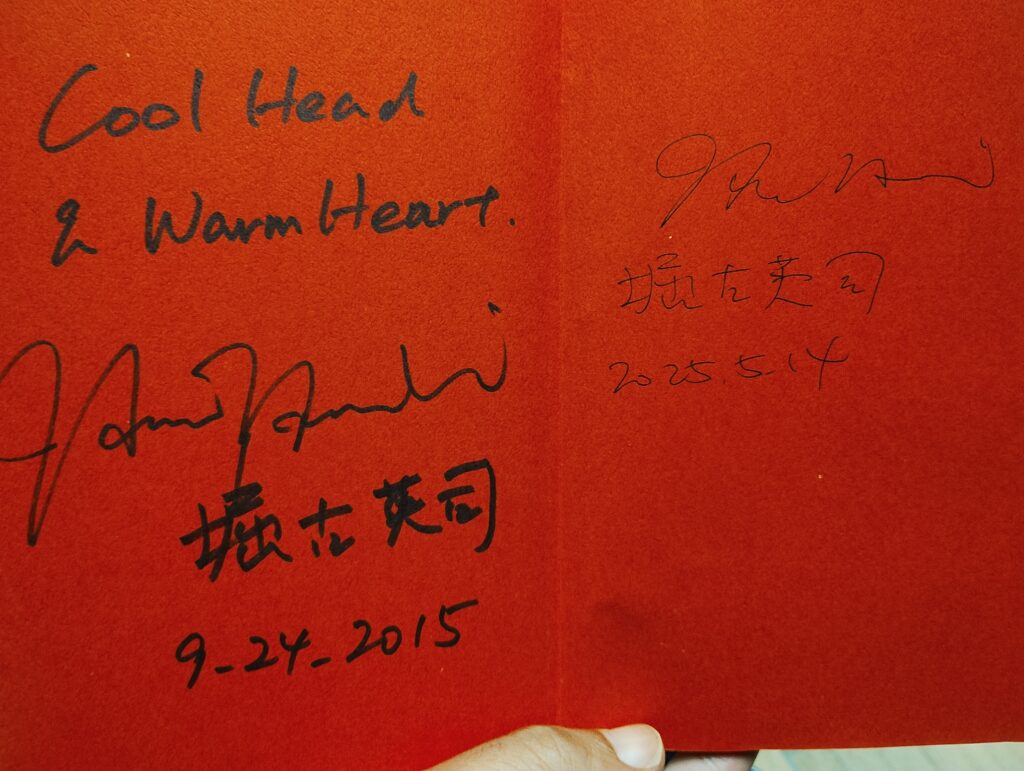 Cool Head
& Warm Heart.
堀古英司
9-24-2015
堀古英司
2025.5.14